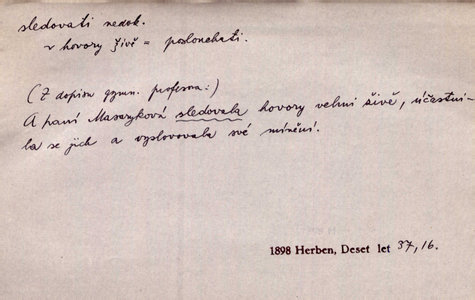 sledovati nedok.
~ hovory živě = poslouchati.
(Z dopisu gymn. profesora:)
A paní Masaryková sledovala hovory velmi živě, účastni-
la se jich a vyslovovala své mínění.
1898 Herben, Deset let 37,16.